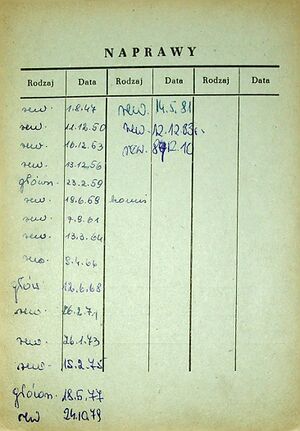 NAPRAWY
Rodzaj Data Rodzaj Data Rodzaj Data
rew. 1.8.47 rew. 14.5.81
rew. 11.12.50 rew. 12.12.83r.
rew. 10.12.63 rew.
rew. 13.12.56
główn. 23.2.59
rew. 19.6.59
rew. 7.9.61
rew. 13.3.64
rew. 9.4.66
głów. 12.6.68
rew. 26.2.71
rew. 26.1.73
rew. 15.2.75
główn. 18.5.77
rew 24.10.79